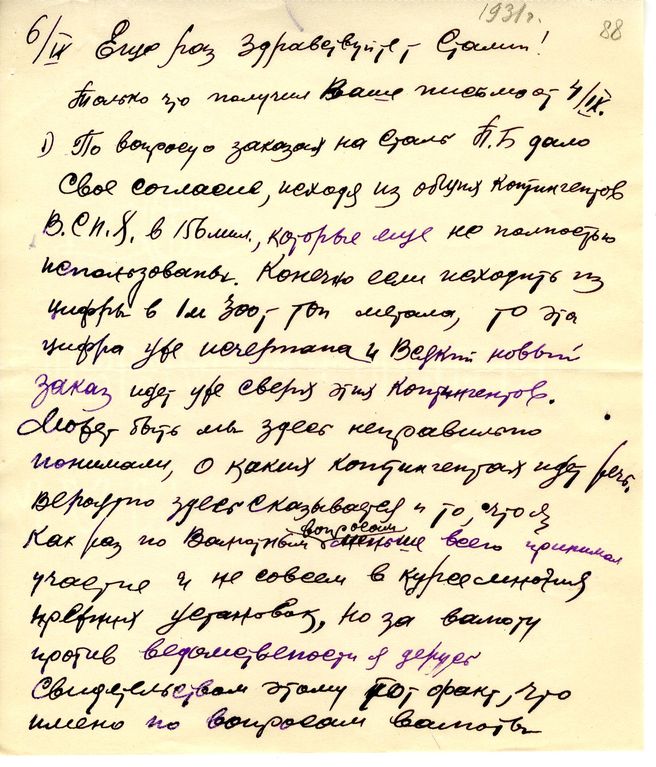 1931г. 88
6/IX Еще раз Здравствуйте, Сталин!
Только что получил Ваше письмо от 4/IX.
1) По вопросу о заказах на Сталь П.Б дало
Свое согласие, исходя из общих контингентов
В.С.Н.Х. в 156 мил., которые еще не полностью
использованы. Конечно если исходить из
цифры в 1м 300 т тон метала, то эта
цифра уже исчерпана и Всякий новый
заказ идет уже сверх этих контингентов.
Может быть мы здесь неправильно
понимали, о каких контингентах идет речь.
Вероятно здесь сказывается и то, что я
Как раз по Валютным вопросам меньше всего принимал
участие и не совсем в курсе многих
прежних установок, но за валюту
против ведомствености я держусь
Свидетельством этому тот факт, что
имено по вопросам валюты